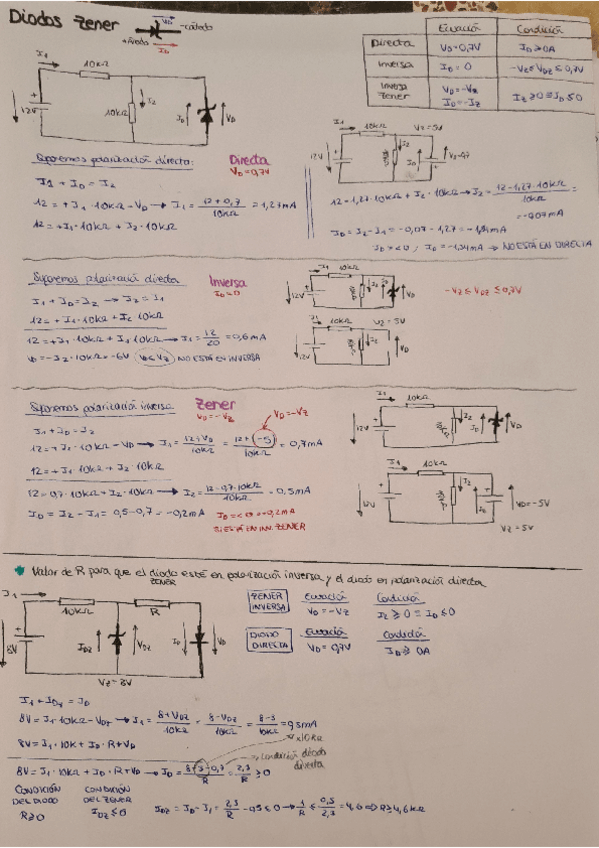 Diodos Zener
VD
-cátodo
+Ánodo
ID
Ecuación Condición
Directa VD=0,7V ID≥0A
Inversa ID=0 -VZ≤VDZ≤0,7V
Inversa Zener VD=-VZ ID=-IZ IZ≥0≡ID≤0
I1 10kΩ
12V 10kΩ I2 ID VD
I1 10kΩ VZ=5V
12V I2 ID
Suporemos polarización directa: Directa
VD=0,7V
I1+ID=I2
12=+I1·10kΩ-VD → I1=12+0,7/10kΩ=1,27mA
12=+I1·10kΩ+I2·10kΩ
12=1,27·10kΩ+I2·10kΩ → I2=12-1,27·10kΩ/10kΩ=
=-0,07mA
ID=I2-I1=-0,07-1,27=-1,34mA
ID=<0; ID=-1,34mA → NO ESTÁ EN DIRECTA
Suporemos polarización directa Inversa
ID=0
I1+ID=I2 → I2=I1
12=+I1·10kΩ+I2·10kΩ
12=+I1·10kΩ+I1·10kΩ → I1=12/20=0,6mA
VD=-I2·10kΩ=-6V VD≤VZ NO ESTÁ EN INVERSA
I1 10kΩ
12V I2 VD
-VZ≤VDZ≤0,7V
I1 10kΩ VZ=5V
12V VD
Suporemos polarización inversa Zener
VD=-VZ
VD=-VZ
I1+ID=I2
12=+I1·10kΩ-VD → I1=12+VD/10kΩ=12+(-5)/10kΩ=0,7mA
12=+I1·10kΩ+I2·10kΩ
12=0,7·10kΩ+I2·10kΩ → I2=12-0,7·10kΩ/10kΩ=0,5mA
ID=I2-I1=0,5-0,7=-0,2mA ID=<0=-0,2mA
SI ESTÁ EN INV. ZENER
10kΩ
12V I2 ID VD
I1 10kΩ
I2 VD=-5V
VZ=5V
Valor de R para que el diodo ZENER esté en polarización inversa y el diodo en polarización directa
I1 10kΩ R
8V IDZ VDZ ID VD
ZENER INVERSA Ecuación Condición
VD=-VZ IZ≥0≡ID≤0
DIODO DIRECTA Ecuación Condición
VD=0,7V ID≥0A
I1+IDZ=ID
8V=I1·10kΩ-VDZ → I1=8+VDZ/10kΩ=8-VDZ/10kΩ=8-3/10kΩ=0,5mA
8V=I1·10k+ID·R+VD
x10kΩ
condición diodo directa
8V=I1·10kΩ+ID·R+VD → ID=8-5-0,7/R=2,3/R≥0
CONDICIÓN DEL DIODO CONDICIÓN DEL ZENER
R≥0 IDZ≤0 IDZ=ID-I1=2,3/R-0,5≤0 → 1/R≤0,5/2,3=4,6 ⇒ R≥4,6kΩ